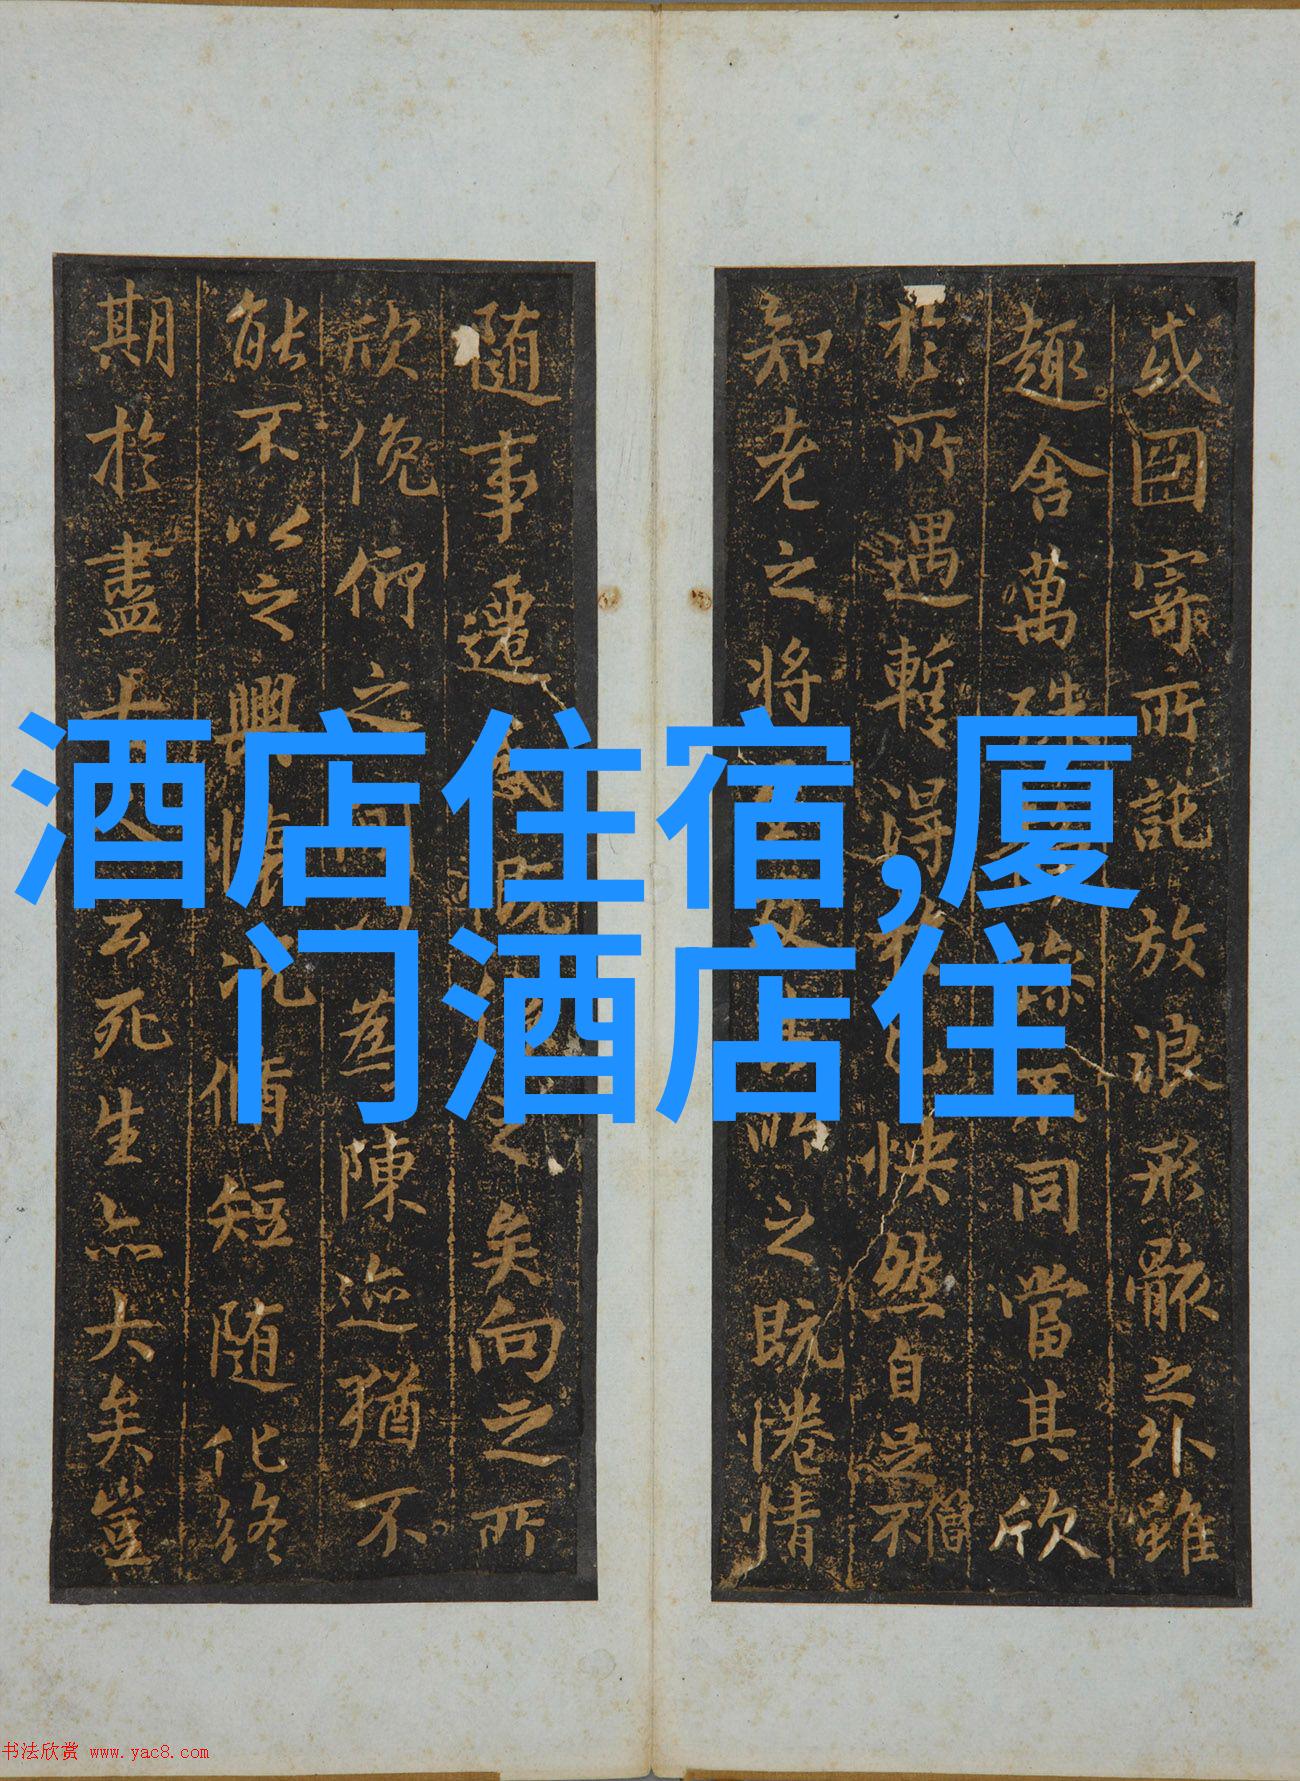 或因寄所託放浪形骸之外雖
趣舍萬殊躁不同當其欣
於所遇暫得己快然自足不
僧
知老之將所之既惓情
随事遷感慨係之矣向之所
欣俛仰之間為陳迹猶不
能不以之興懷況脩短随化終
期於盡古人云死生亦大矣豈
酒店住宿,厦
门酒店住
书法欣赏 www.yac8.com